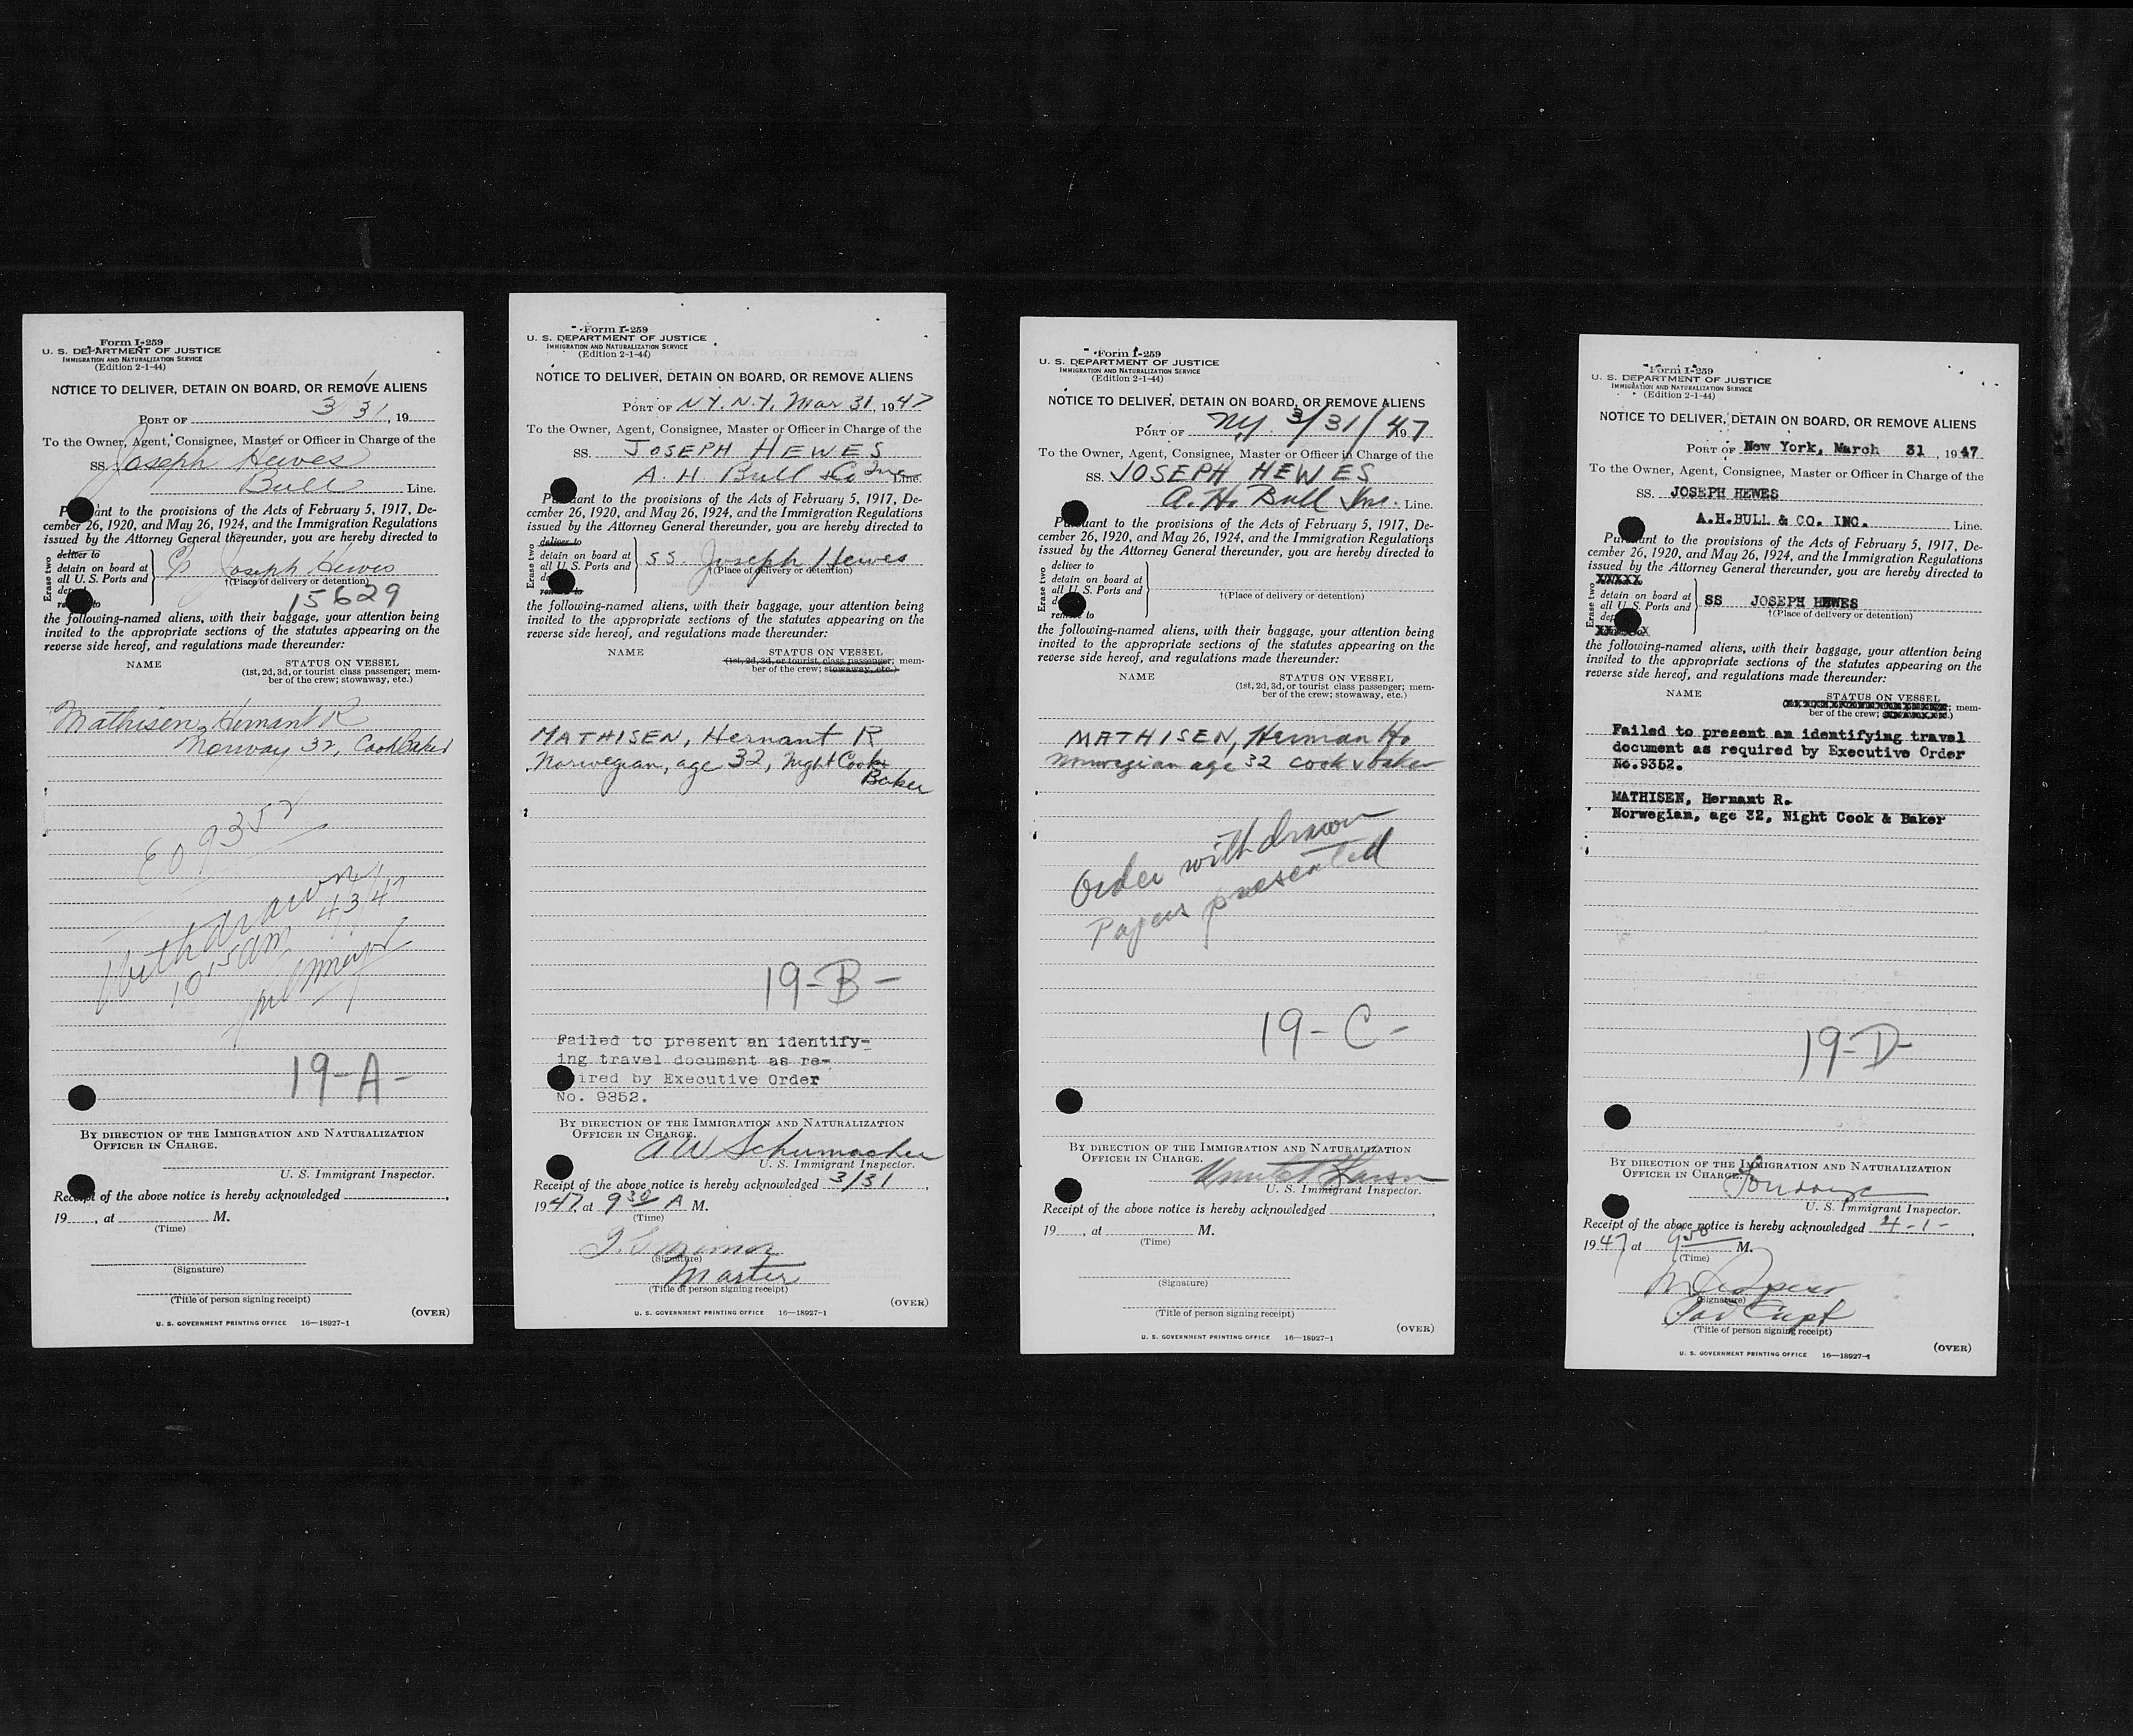 Form I-259
U. S. DEPARTMENT OF JUSTICE
IMMIGRATION AND NATURALIZATION SERVICE
(Edition 2-1-44)
NOTICE TO DELIVER, DETAIN ON BOARD, OR REMOVE ALIENS
PORT OF 3/31, 19
To the Owner, Agent, Consignee, Master or Officer in Charge of the
SS. Joseph Hewes
Bull Line.
Pursuant to the provisions of the Acts of February 5, 1917, De-
cember 26, 1920, and May 26, 1924, and the Immigration Regulations
issued by the Attorney General thereunder, you are hereby directed to
Erase two
deliver to
detain on board at
all U. S. Ports and
Joseph Hewes
†(Place of delivery or detention)
15629
the following-named aliens, with their baggage, your attention being
invited to the appropriate sections of the statutes appearing on the
reverse side hereof, and regulations made thereunder:
NAME STATUS ON VESSEL
(1st, 2d, 3d, or tourist class passenger; mem-
ber of the crew; stowaway, etc.)
Mathisen, Hernant R
Norway 32, Cook Baker
EO 9352
Withdrawn
4/3/47
10 15 am
19-A-
BY DIRECTION OF THE IMMIGRATION AND NATURALIZATION
OFFICER IN CHARGE.
U. S. Immigrant Inspector.
Receipt of the above notice is hereby acknowledged
19 , at M.
(Time)
(Signature)
(Title of person signing receipt)
(OVER)
U. S. GOVERNMENT PRINTING OFFICE 16—18927-1
Form I-259
U. S. DEPARTMENT OF JUSTICE
IMMIGRATION AND NATURALIZATION SERVICE
(Edition 2-1-44)
NOTICE TO DELIVER, DETAIN ON BOARD, OR REMOVE ALIENS
PORT OF N.Y. N.Y. Mar 31, 1947
To the Owner, Agent, Consignee, Master or Officer in Charge of the
SS. JOSEPH HEWES
A. H. Bull & Co Inc Line.
Pursuant to the provisions of the Acts of February 5, 1917, De-
cember 26, 1920, and May 26, 1924, and the Immigration Regulations
issued by the Attorney General thereunder, you are hereby directed to
Erase two
deliver to
detain on board at
all U. S. Ports and
SS. Joseph Hewes
†(Place of delivery or detention)
the following-named aliens, with their baggage, your attention being
invited to the appropriate sections of the statutes appearing on the
reverse side hereof, and regulations made thereunder:
NAME STATUS ON VESSEL
(1st, 2d, 3d, or tourist class passenger; mem-
ber of the crew; stowaway, etc.)
MATHISEN, Hernant R
Norwegian, age 32, Night Cook &
Baker
19-B-
Failed to present an identify-
ing travel document as re-
quired by Executive Order
No. 9352.
BY DIRECTION OF THE IMMIGRATION AND NATURALIZATION
OFFICER IN CHARGE.
A W Schumacher
U. S. Immigrant Inspector.
Receipt of the above notice is hereby acknowledged 3/31,
1947, at 9 30 A M.
(Time)
(Signature)
Master
(Title of person signing receipt)
(OVER)
U. S. GOVERNMENT PRINTING OFFICE 16—18927-1
Form I-259
U. S. DEPARTMENT OF JUSTICE
IMMIGRATION AND NATURALIZATION SERVICE
(Edition 2-1-44)
NOTICE TO DELIVER, DETAIN ON BOARD, OR REMOVE ALIENS
PORT OF NY 3/31/1947
To the Owner, Agent, Consignee, Master or Officer in Charge of the
SS. JOSEPH HEWES
A. H. Bull Inc. Line.
Pursuant to the provisions of the Acts of February 5, 1917, De-
cember 26, 1920, and May 26, 1924, and the Immigration Regulations
issued by the Attorney General thereunder, you are hereby directed to
Erase two
deliver to
detain on board at
all U. S. Ports and
remove to
†(Place of delivery or detention)
the following-named aliens, with their baggage, your attention being
invited to the appropriate sections of the statutes appearing on the
reverse side hereof, and regulations made thereunder:
NAME STATUS ON VESSEL
(1st, 2d, 3d, or tourist class passenger; mem-
ber of the crew; stowaway, etc.)
MATHISEN, Herman H.
Norwegian age 32 cook & baker
Order withdrawn
Papers presented
19-C-
BY DIRECTION OF THE IMMIGRATION AND NATURALIZATION
OFFICER IN CHARGE.
U. S. Immigrant Inspector.
Receipt of the above notice is hereby acknowledged
19 , at M.
(Time)
(Signature)
(Title of person signing receipt)
(OVER)
U. S. GOVERNMENT PRINTING OFFICE 16—18927-1
Form I-259
U. S. DEPARTMENT OF JUSTICE
IMMIGRATION AND NATURALIZATION SERVICE
(Edition 2-1-44)
NOTICE TO DELIVER, DETAIN ON BOARD, OR REMOVE ALIENS
PORT OF New York, March 31, 1947
To the Owner, Agent, Consignee, Master or Officer in Charge of the
SS. JOSEPH HEWES
A.H.BULL & CO. INC. Line.
Pursuant to the provisions of the Acts of February 5, 1917, De-
cember 26, 1920, and May 26, 1924, and the Immigration Regulations
issued by the Attorney General thereunder, you are hereby directed to
Erase two
XXXXX
detain on board at
all U. S. Ports and
SS JOSEPH HEWES
†(Place of delivery or detention)
the following-named aliens, with their baggage, your attention being
invited to the appropriate sections of the statutes appearing on the
reverse side hereof, and regulations made thereunder:
NAME STATUS ON VESSEL
mem-
ber of the crew;
Failed to present an identifying travel
document as required by Executive Order
No.9352.
MATHISEN, Hernant R.
Norwegian, age 32, Night Cook & Baker
19-D-
BY DIRECTION OF THE IMMIGRATION AND NATURALIZATION
OFFICER IN CHARGE.
U. S. Immigrant Inspector.
Receipt of the above notice is hereby acknowledged 4-1-
1947 at 9 50 M.
(Time)
(Signature)
(Title of person signing receipt)
(OVER)
U. S. GOVERNMENT PRINTING OFFICE 16—18927-1